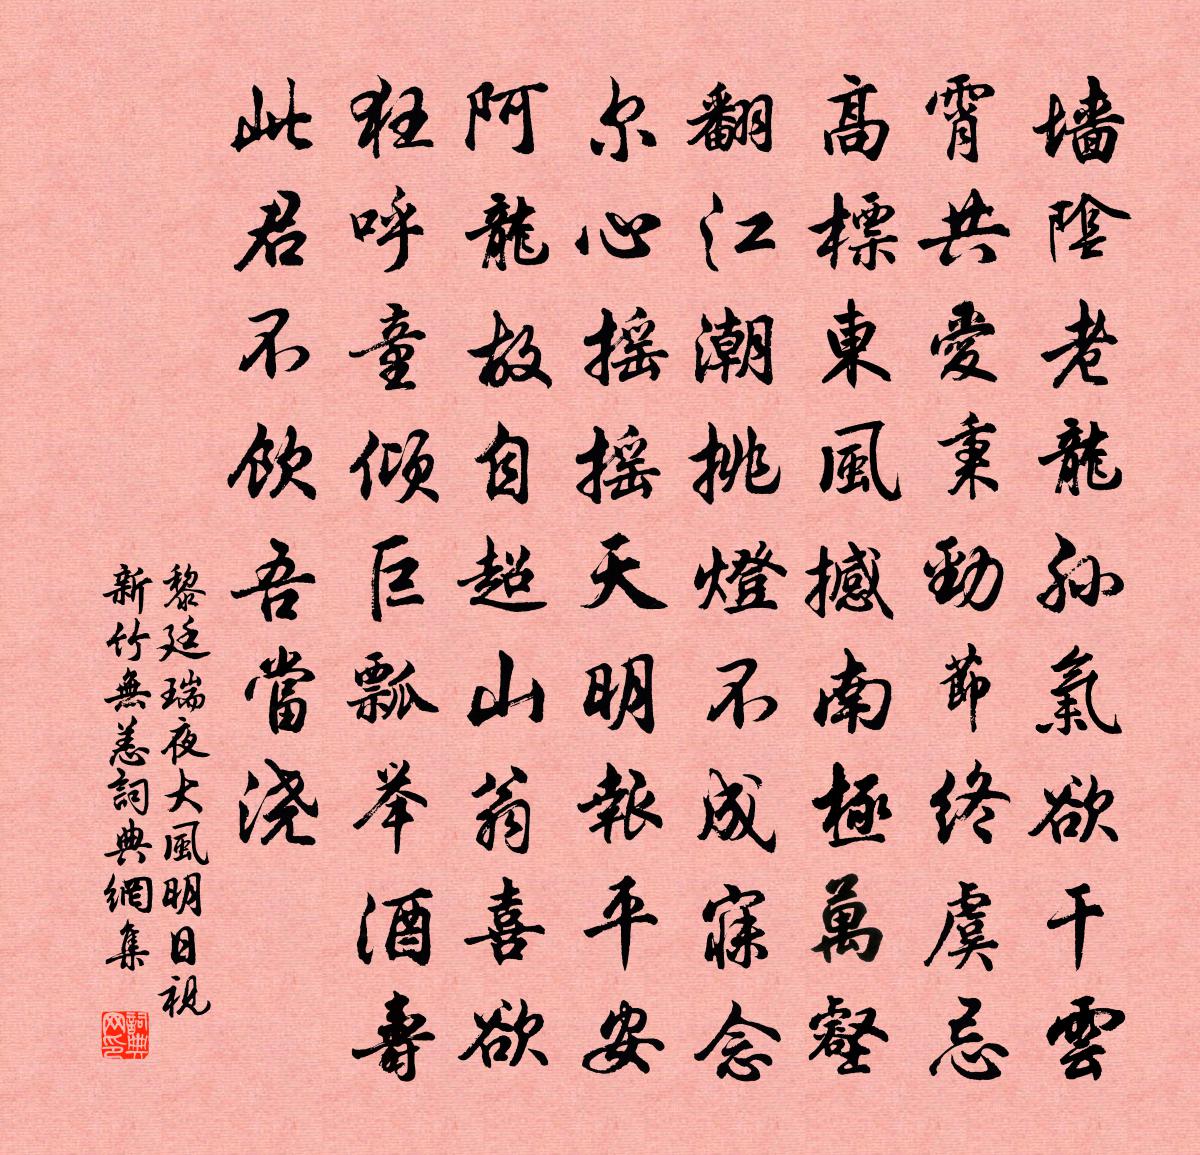 墙陰老龍孫氣欲干雲
霄共愛秉勁節終虞忌
高標東風撼南極萬壑
翻江潮挑燈不成寐念
尔心摇摇天明報平安
阿龍故自超山翁喜欲
狂呼童傾巨瓢举酒壽
此君不飲吾當浇
黎廷瑞夜大風明日視
新竹無恙詞典網集
詞典
网印